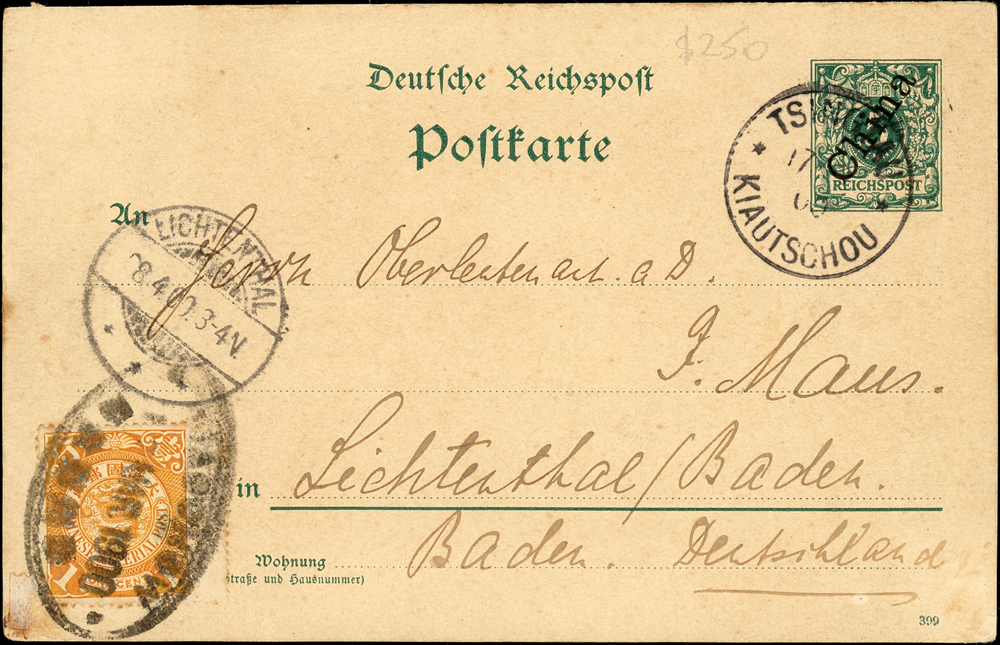 $250
Deutsche Reichspost
Postkarte
China
REICHSPOST
TSINGTAU
17
00
KIAUTSCHOU
An
Herrn Oberleutenant a. D.
LICHTENTHAL
8.4.00.3-4V.
J. Maus.
in Lichtenthal/Baden.
Baden. Deutschland
Wohnung
(Straße und Hausnummer)
1
1
ONE CENT
1900
399